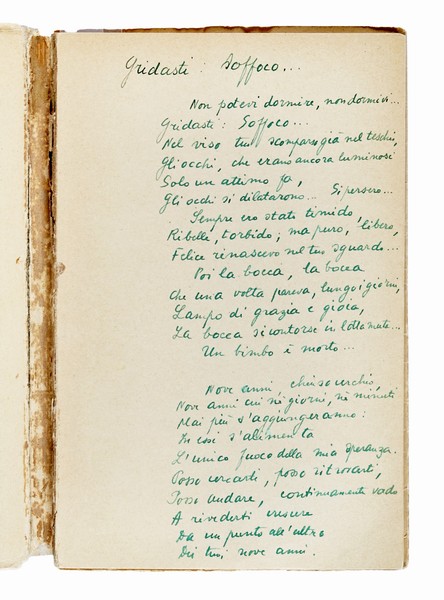 Gridasti: Soffoco...
Non potevi dormire, non dormivi...
Gridasti: Soffoco...
Nel viso tuo scomparso già nel teschio,
Gli occhi, che erano ancora luminosi
Solo un attimo fa,
Gli occhi si dilatarono... Si persero...
Sempre ero stato timido,
Ribelle, torbido; ma puro, libero,
Felice rinascevo nel tuo sguardo...
Poi la bocca, la bocca
Che una volta pareva, lungo i giorni,
Lampo di grazia e gioia,
La bocca si contorse in lotta muta...
Un bimbo è morto...
Nove anni, chiuso cerchio,
Nove anni cui nè giorni, nè minuti
Mai più s'aggiungeranno:
In essi s'alimenta
L'unico fuoco della mia speranza.
Posso cercarti, posso ritrovarti,
Posso andare, continuamente vado
A rivederti crescere
Da un punto all'altro
Dei tuoi nove anni.